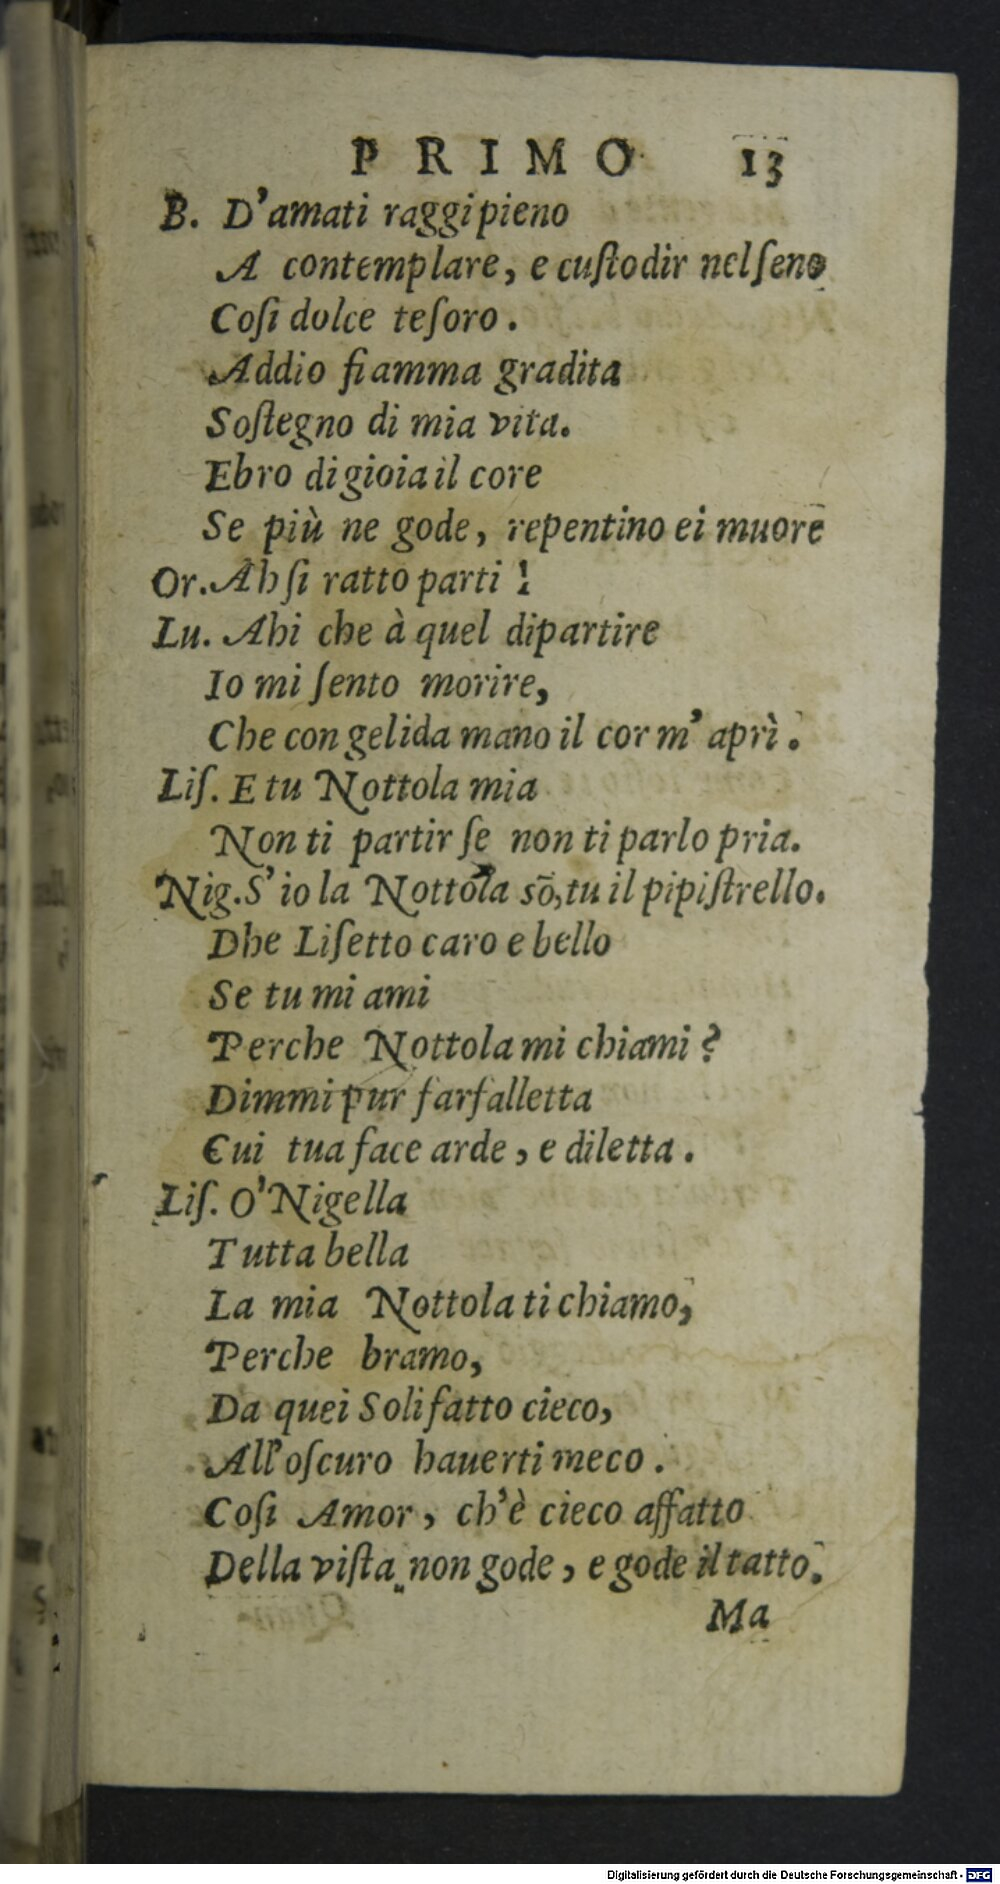 PRIMO 13
B. D'amati raggi pieno
A contemplare, e cuſtodir nel ſeno
Coſi dolce teſoro.
Addio fiamma gradita
Soſtegno di mia vita.
Ebro di gioia il core
Se più ne gode, repentino ei muore
Or. Ah ſi ratto parti!
Lu. Ahi che à quel dipartire
Io mi ſento morire,
Che con gelida mano il cor m' aprì.
Liſ. E tu Nottola mia
Non ti partir ſe non ti parlo pria.
Nig. S' io la Nottola sō, tu il pipiſtrello.
Dhe Liſetto caro e bello
Se tu mi ami
Perche Nottola mi chiami?
Dimmi pur farfalletta
Cui tua face arde, e diletta.
Liſ. O' Nigella
Tutta bella
La mia Nottola ti chiamo,
Perche bramo,
Da quei Soli fatto cieco,
All'oſcuro hauerti meco.
Coſi Amor, ch'è cieco affatto
Della viſta non gode, e gode il tatto.
Ma
Digitalisierung gefördert durch die Deutsche Forschungsgemeinschaft - DFG